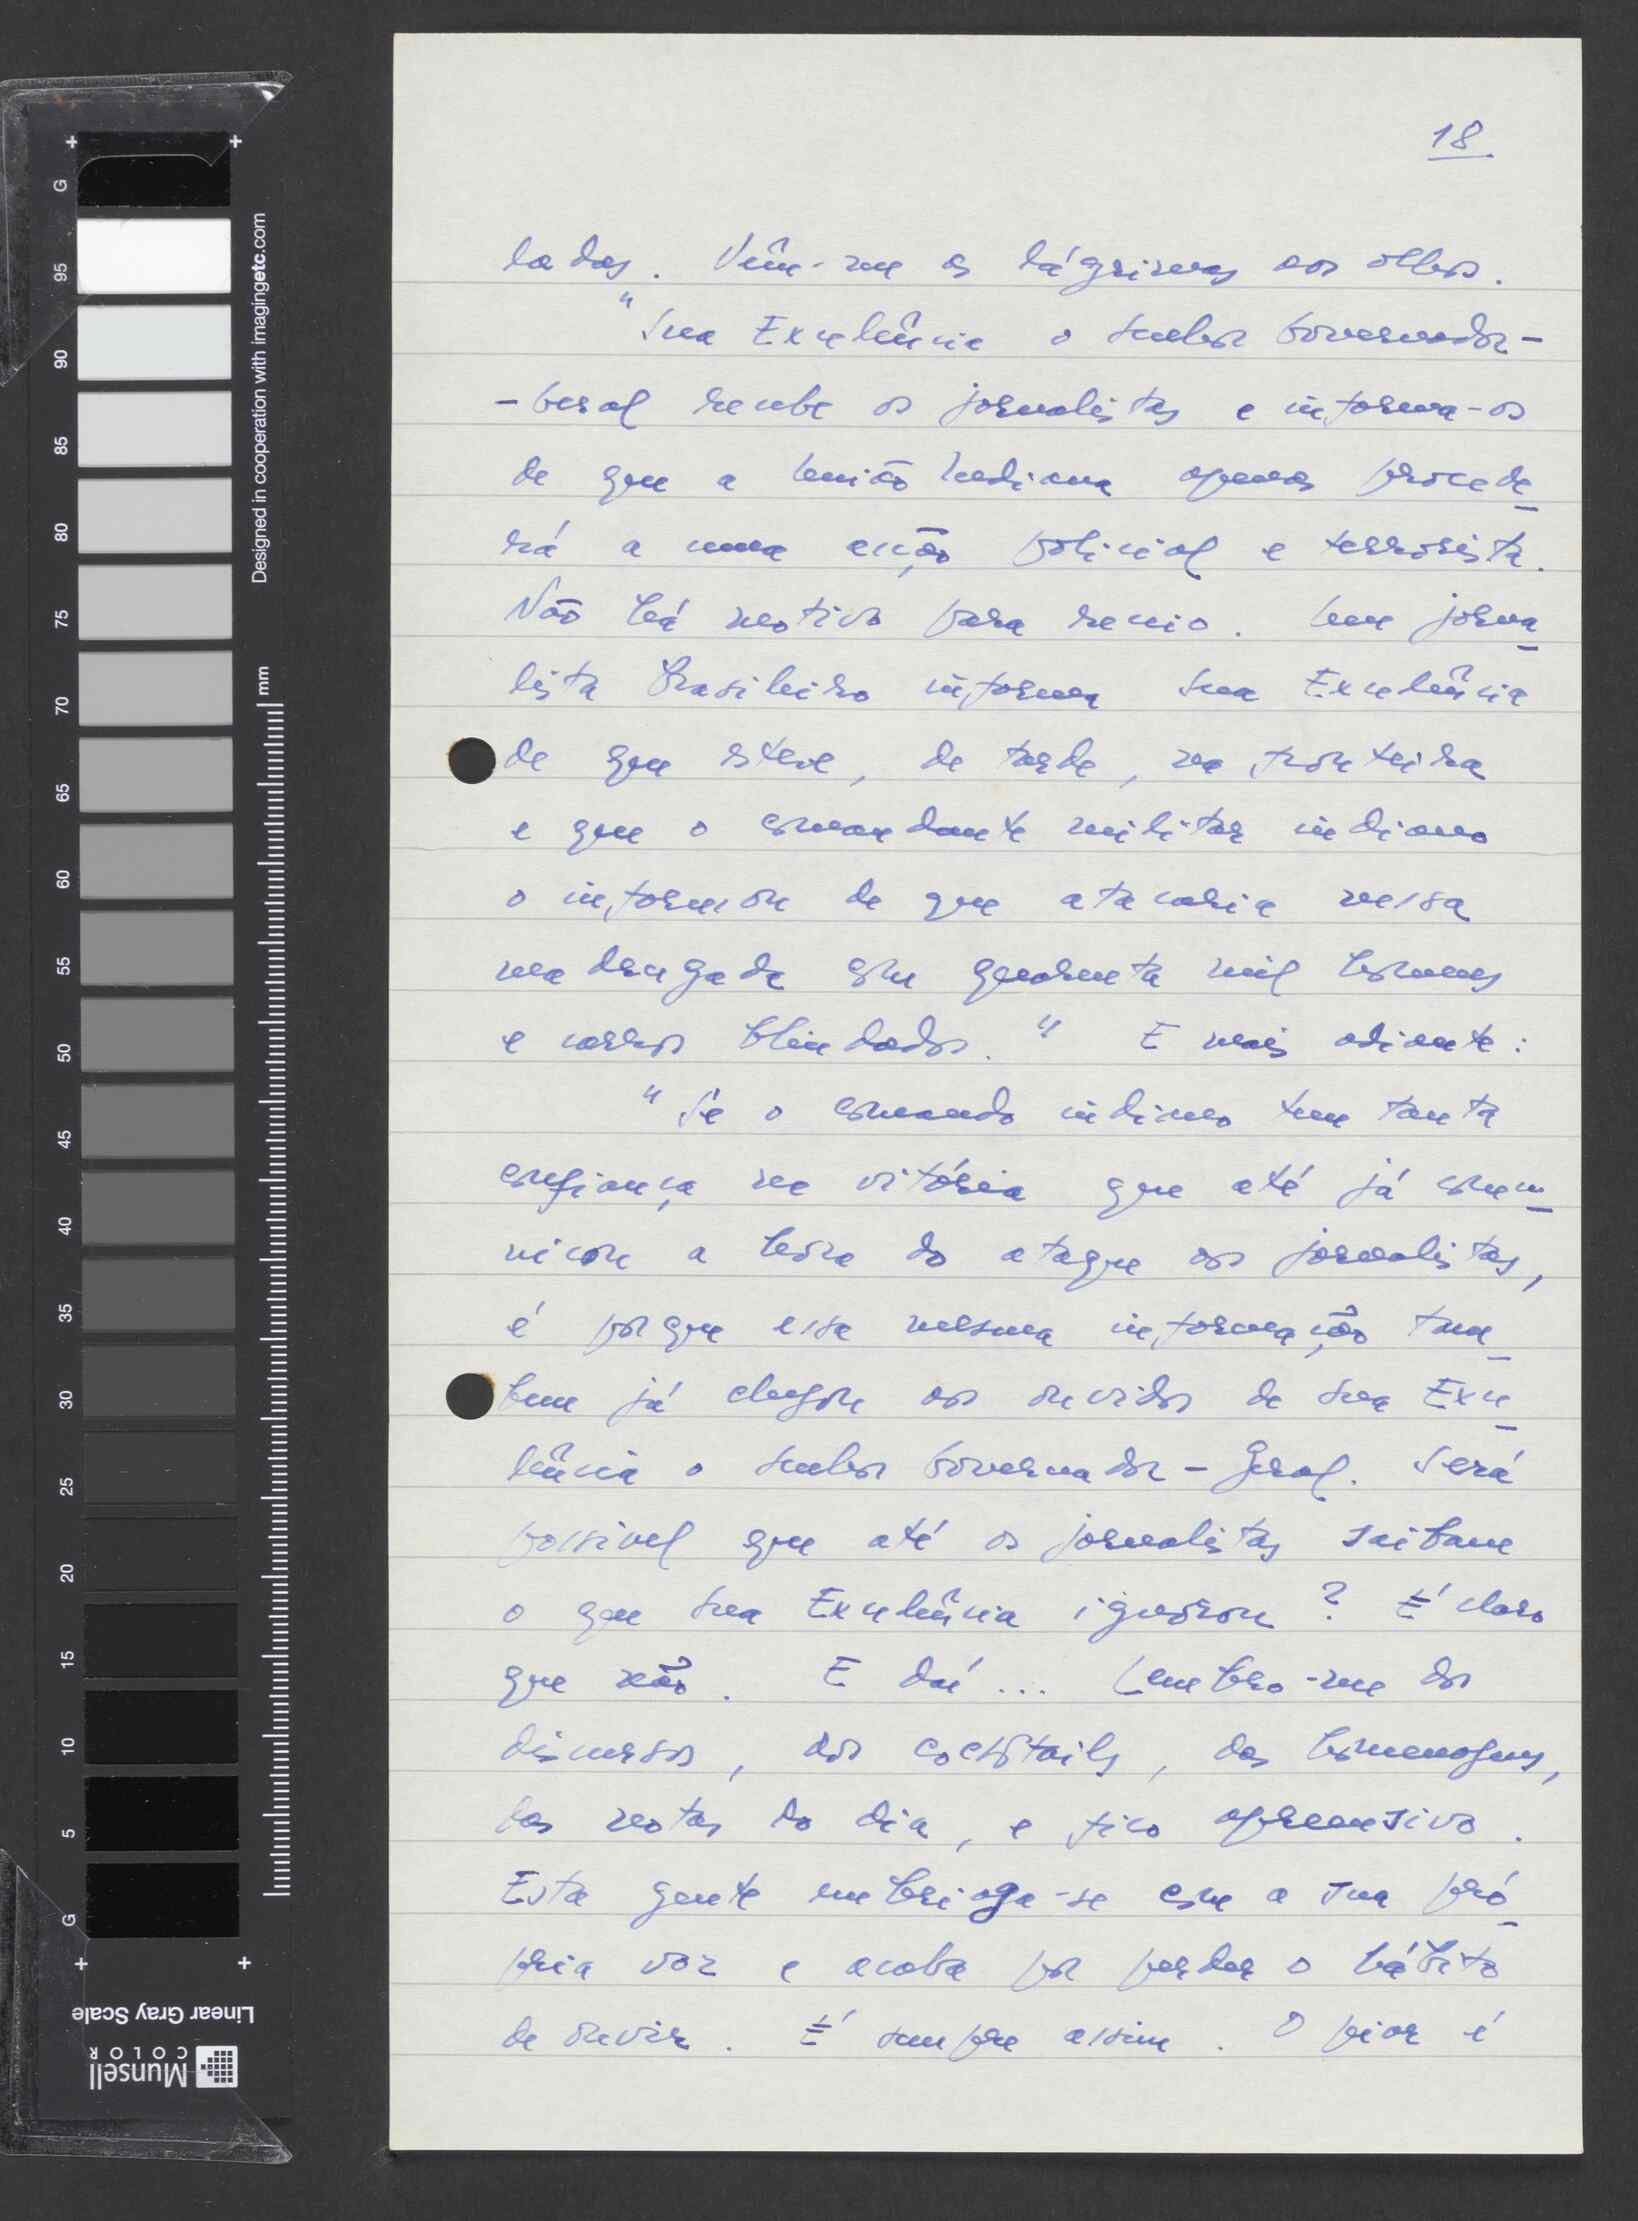 18
dados. Vêm-me as lágrimas aos olhos.
"Sua Excelência o Senhor Governador-
-Geral recebe os jornalistas e informa-os
de que a União Indiana apenas procede
rá a uma acção policial e terrorista.
Não há motivo para receio. Um jorna
lista Brasileiro informa Sua Excelência
de que esteve, de tarde, na fronteira
e que o comandante militar indiano
o informou de que atacaria nessa
madrugada com quarenta mil homens
e carros blindados." E mais adiante:
"Se o comando indiano tem tanta
confiança na vitória que até já comu
nicou a hora do ataque aos jornalistas,
é porque essa mesma informação tam
bem já chegou aos ouvidos de Sua Exce
lência o Senhor Governador-Geral. Será
possivel que até os jornalistas saibam
o que Sua Excelência ignorou? É claro
que não. E daí... Lembro-me dos
discursos, dos cocktails, das homenagens,
das notas do dia, e fico apreensivo.
Esta gente embriaga-se com a sua pró
pria voz e acaba por perder o hábito
de ouvir. É sempre assim. O pior é
G
95
90
85
80
75
70
65
60
55
50
45
40
35
30
25
20
15
10
5
G
mm
Designed in cooperation with imagingetc.com
Linear Gray Scale
Munsell
COLOR